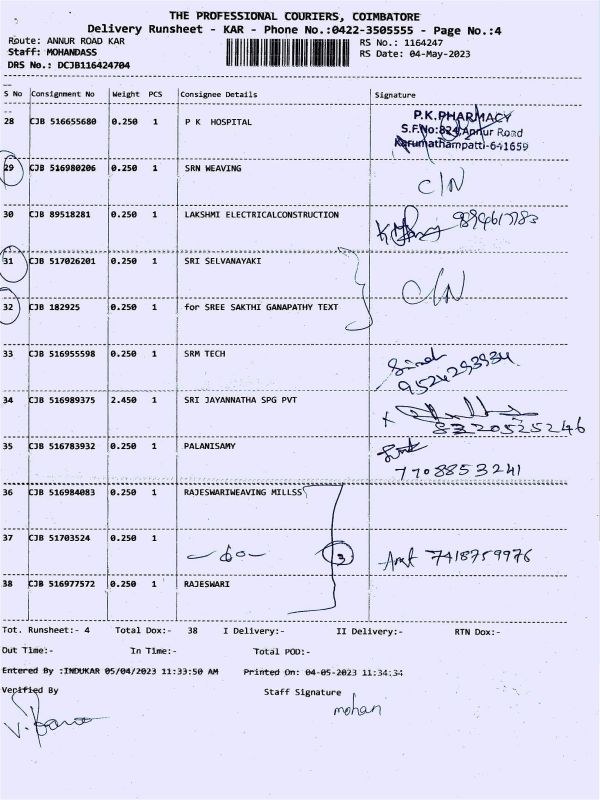 THE PROFESSIONAL COURIERS, COIMBATORE
Delivery Runsheet - KAR - Phone No.:0422-3505555 - Page No.:4
Route: ANNUR ROAD KAR RS No.: 1164247
Staff: MOHANDASS RS Date: 04-May-2023
DRS No.: DCJB116424704
S No Consignment No Weight PCS Consignee Details Signature
28 CJB 516655680 0.250 1 P K HOSPITAL
P.K.PHARMACY
S.F.No:824, Annur Road
Karumathampatti-641659
29 CJB 516980206 0.250 1 SRN WEAVING
C/N
30 CJB 89518281 0.250 1 LAKSHMI ELECTRICALCONSTRUCTION
31 CJB 517026201 0.250 1 SRI SELVANAYAKI
C/N
32 CJB 182925 0.250 1 for SREE SAKTHI GANAPATHY TEXT
33 CJB 516955598 0.250 1 SRM TECH
9524293934
34 CJB 516989375 2.450 1 SRI JAYANNATHA SPG PVT
8220525246
35 CJB 516783932 0.250 1 PALANISAMY
7708853241
36 CJB 516984083 0.250 1 RAJESWARIWEAVING MILLSS
37 CJB 51703524 0.250 1 - do - 3 7418759976
38 CJB 516977572 0.250 1 RAJESWARI
Tot. Runsheet:- 4 Total Dox:- 38 I Delivery:- II Delivery:- RTN Dox:-
Out Time:- In Time:- Total POD:-
Entered By :INDUKAR 05/04/2023 11:33:50 AM Printed On: 04-05-2023 11:34:34
Verified By Staff Signature
mohan